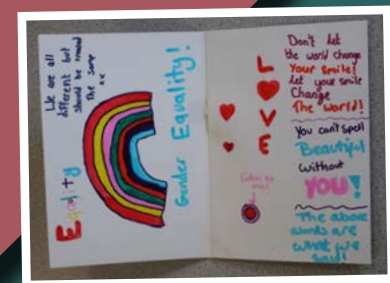 Equality
We are all
different but
should be treated
the same
xx
Gender Equality!
LOVE
Don't let
the world change
Your smile!
let your smile
Change
The World!
You can't spell
Beautiful
without
YOU!
The above
words are
what we
said!